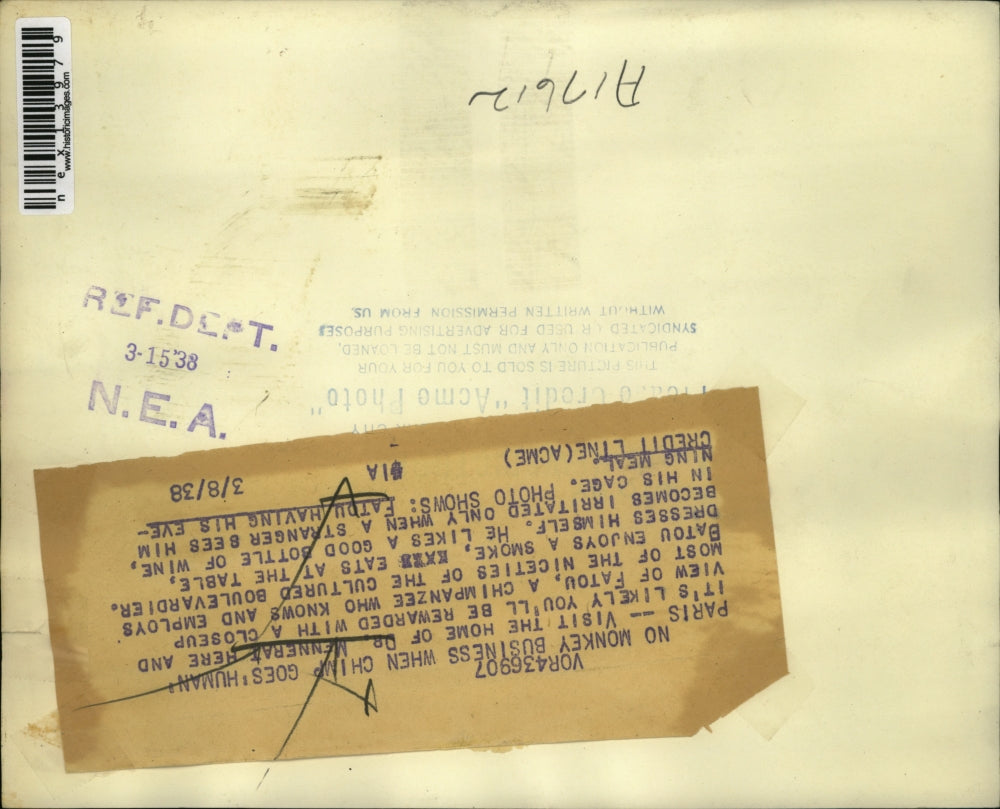 nex13979
www.historicimages.com
A17612
REF.DEPT.
3-15'38
N.E.A.
THIS PICTURE IS SOLD TO YOU FOR YOUR
PUBLICATION ONLY AND MUST NOT BE LOANED,
SYNDICATED OR USED FOR ADVERTISING PURPOSES
WITHOUT WRITTEN PERMISSION FROM US.
Credit "Acme Photo"
VOR436907
NO MONKEY BUSINESS WHEN CHIMP GOES 'HUMAN'
PARIS -- VISIT THE HOME OF DR. MENNERAT HERE AND
IT'S LIKELY YOU'LL BE REWARDED WITH A CLOSEUP
VIEW OF FATOU, A CHIMPANZEE WHO KNOWS AND EMPLOYS
MOST OF THE NICETIES OF THE CULTURED BOULEVARDIER.
DATOU ENJOYS A SMOKE, EATS AT THE TABLE,
DRESSES HIMSELF. HE LIKES A GOOD BOTTLE OF WINE,
BECOMES IRRITATED ONLY WHEN A STRANGER SEES HIM
IN HIS CAGE. PHOTO SHOWS: FATOU HAVING HIS EVE-
NING MEAL.
CREDIT LINE (ACME) 3/8/38